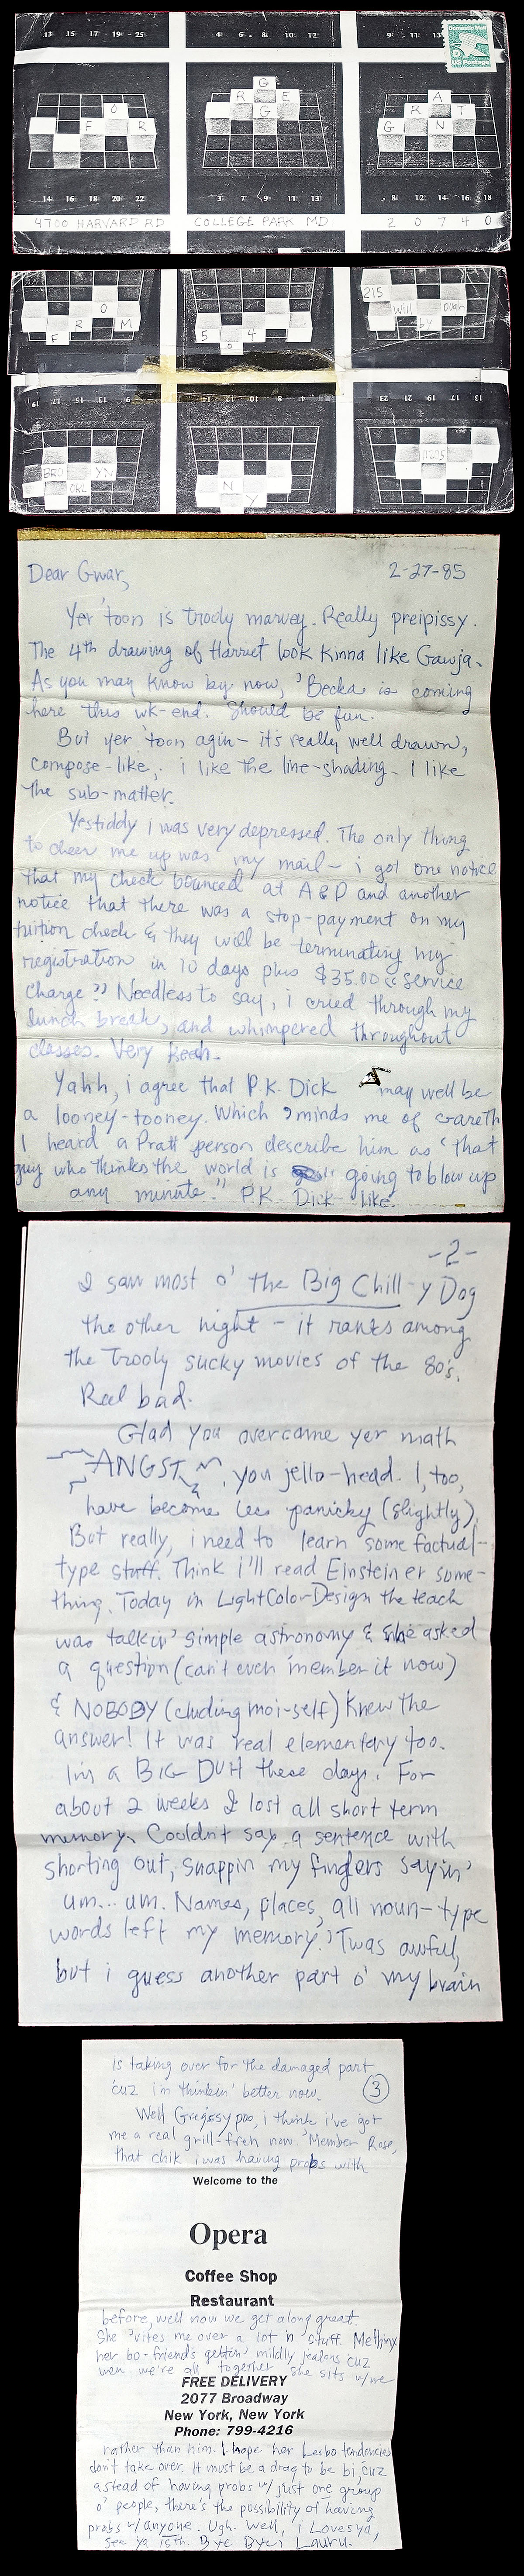 13 15 17 19 25
4 6 8 10 12
9 11 13
Domestic Mail
D
US Postage
F O R
G R E G
G R A N T
14 16 18 20 22
3 7 9 11 13
8 12 14 16 18
4700 HARVARD RD COLLEGE PARK MD 2 0 7 4 0
F R O M
5 0 4
215 Will ough by
BRO OKL YN
N Y
11205
Dear Gwar, 2-27-85
Yer 'toon is trooly marvey. Really preipissy.
The 4th drawing of Harriet look kinna like Gawja.
As you may know by now, 'Becka is coming
here this wk-end. Should be fun.
But yer 'toon agin - it's really well drawn,
compose-like, i like the line-shading. I like
the sub-matter.
Yestiddy i was very depressed. The only thing
to cheer me up was my mail - i got one notice
that my check bounced at A&P and another
notice that there was a stop-payment on my
tuition check & they will be terminating my
registration in 10 days plus $35.00 "service
charge". Needless to say, i cried through my
lunch break, and whimpered throughout
classes. Very
Yahh, i agree that P.K. Dick may well be
a looney-tooney. Which 'minds me of Gareth
I heard a Pratt person describe him as "that
guy who thinks the world is going to blow up
any minute." P.K. Dick like.
-2-
I saw most o' the Big Chill-y Dog
the other night - it ranks among
the trooly sucky movies of the 80's.
Reel bad.
Glad you overcame yer math
ANGST, you jello-head. I, too,
have become less panicky (slightly).
But really, i need to learn some factual-
type stuff. Think i'll read Einstein er some-
thing. Today in LightColorDesign the teach
was talkin' simple astronomy & she asked
a question (can't even 'member it now)
& NOBODY (cluding moi-self) knew the
answer! It was real elementary too.
I'm a BIG DUH these days. For
about 2 weeks I lost all short term
memory. Couldn't say a sentence with
shorting out, snappin my fingers sayin'
um... um. Names, places, all noun-type
words left my memory. 'Twas awful,
but i guess another part o' my brain
is taking over for the damaged part
'cuz i'm thinkin' better now. 3
Well Gregissypoo, i think i've got
me a real grill-fren now. 'Member Rose,
that chik i was having probs with
Welcome to the
Opera
Coffee Shop
Restaurant
before, well now we get along great.
She 'vites me over a lot 'n stuff. Methinx
her bo-friend's gettin' mildly jealous 'cuz
wen we're all together she sits w/me
FREE DELIVERY
2077 Broadway
New York, New York
Phone: 799-4216
rather than him. I hope her Lesbo tendencies
don't take over. It must be a drag to be bi, cuz
astead of having probs w/ just one group
o' people, there's the possibility of having
probs w/ anyone. Ugh. Well, i Loves ya,
see ya 15th. Bye Bye,